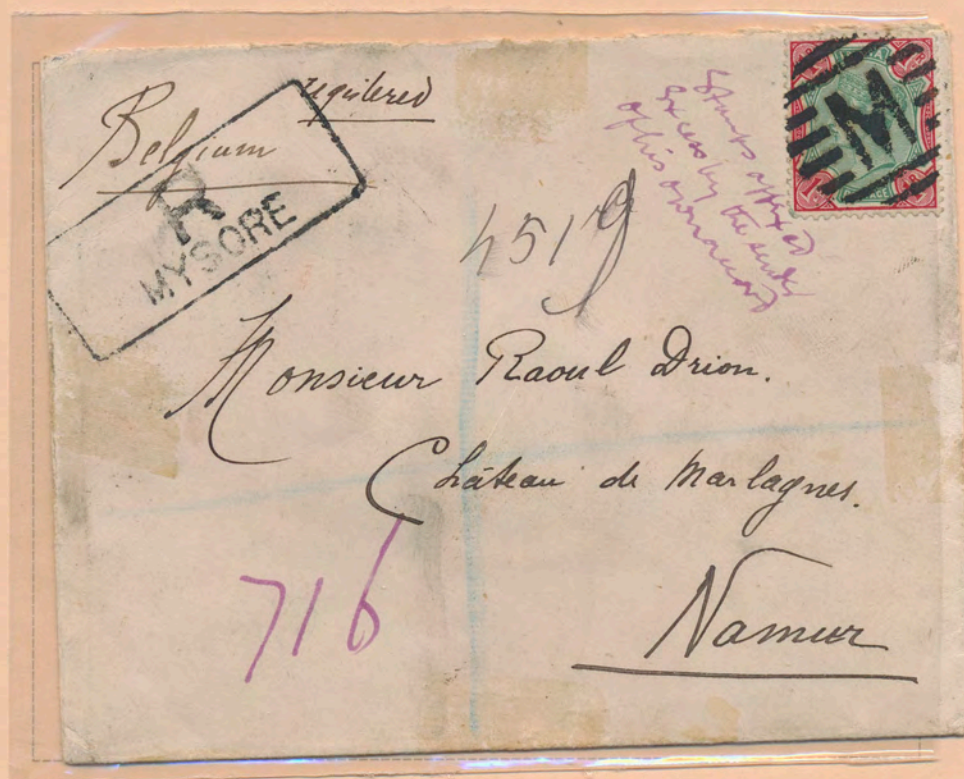 registered
Belgium
R
MYSORE
Stamps affixed
excess by the sender
of his own accord
4519
Monsieur Raoul Drion.
Château de Marlagnes.
Namur
716
M